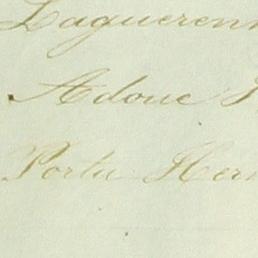 Laguerenn
Adoue
Portu Her